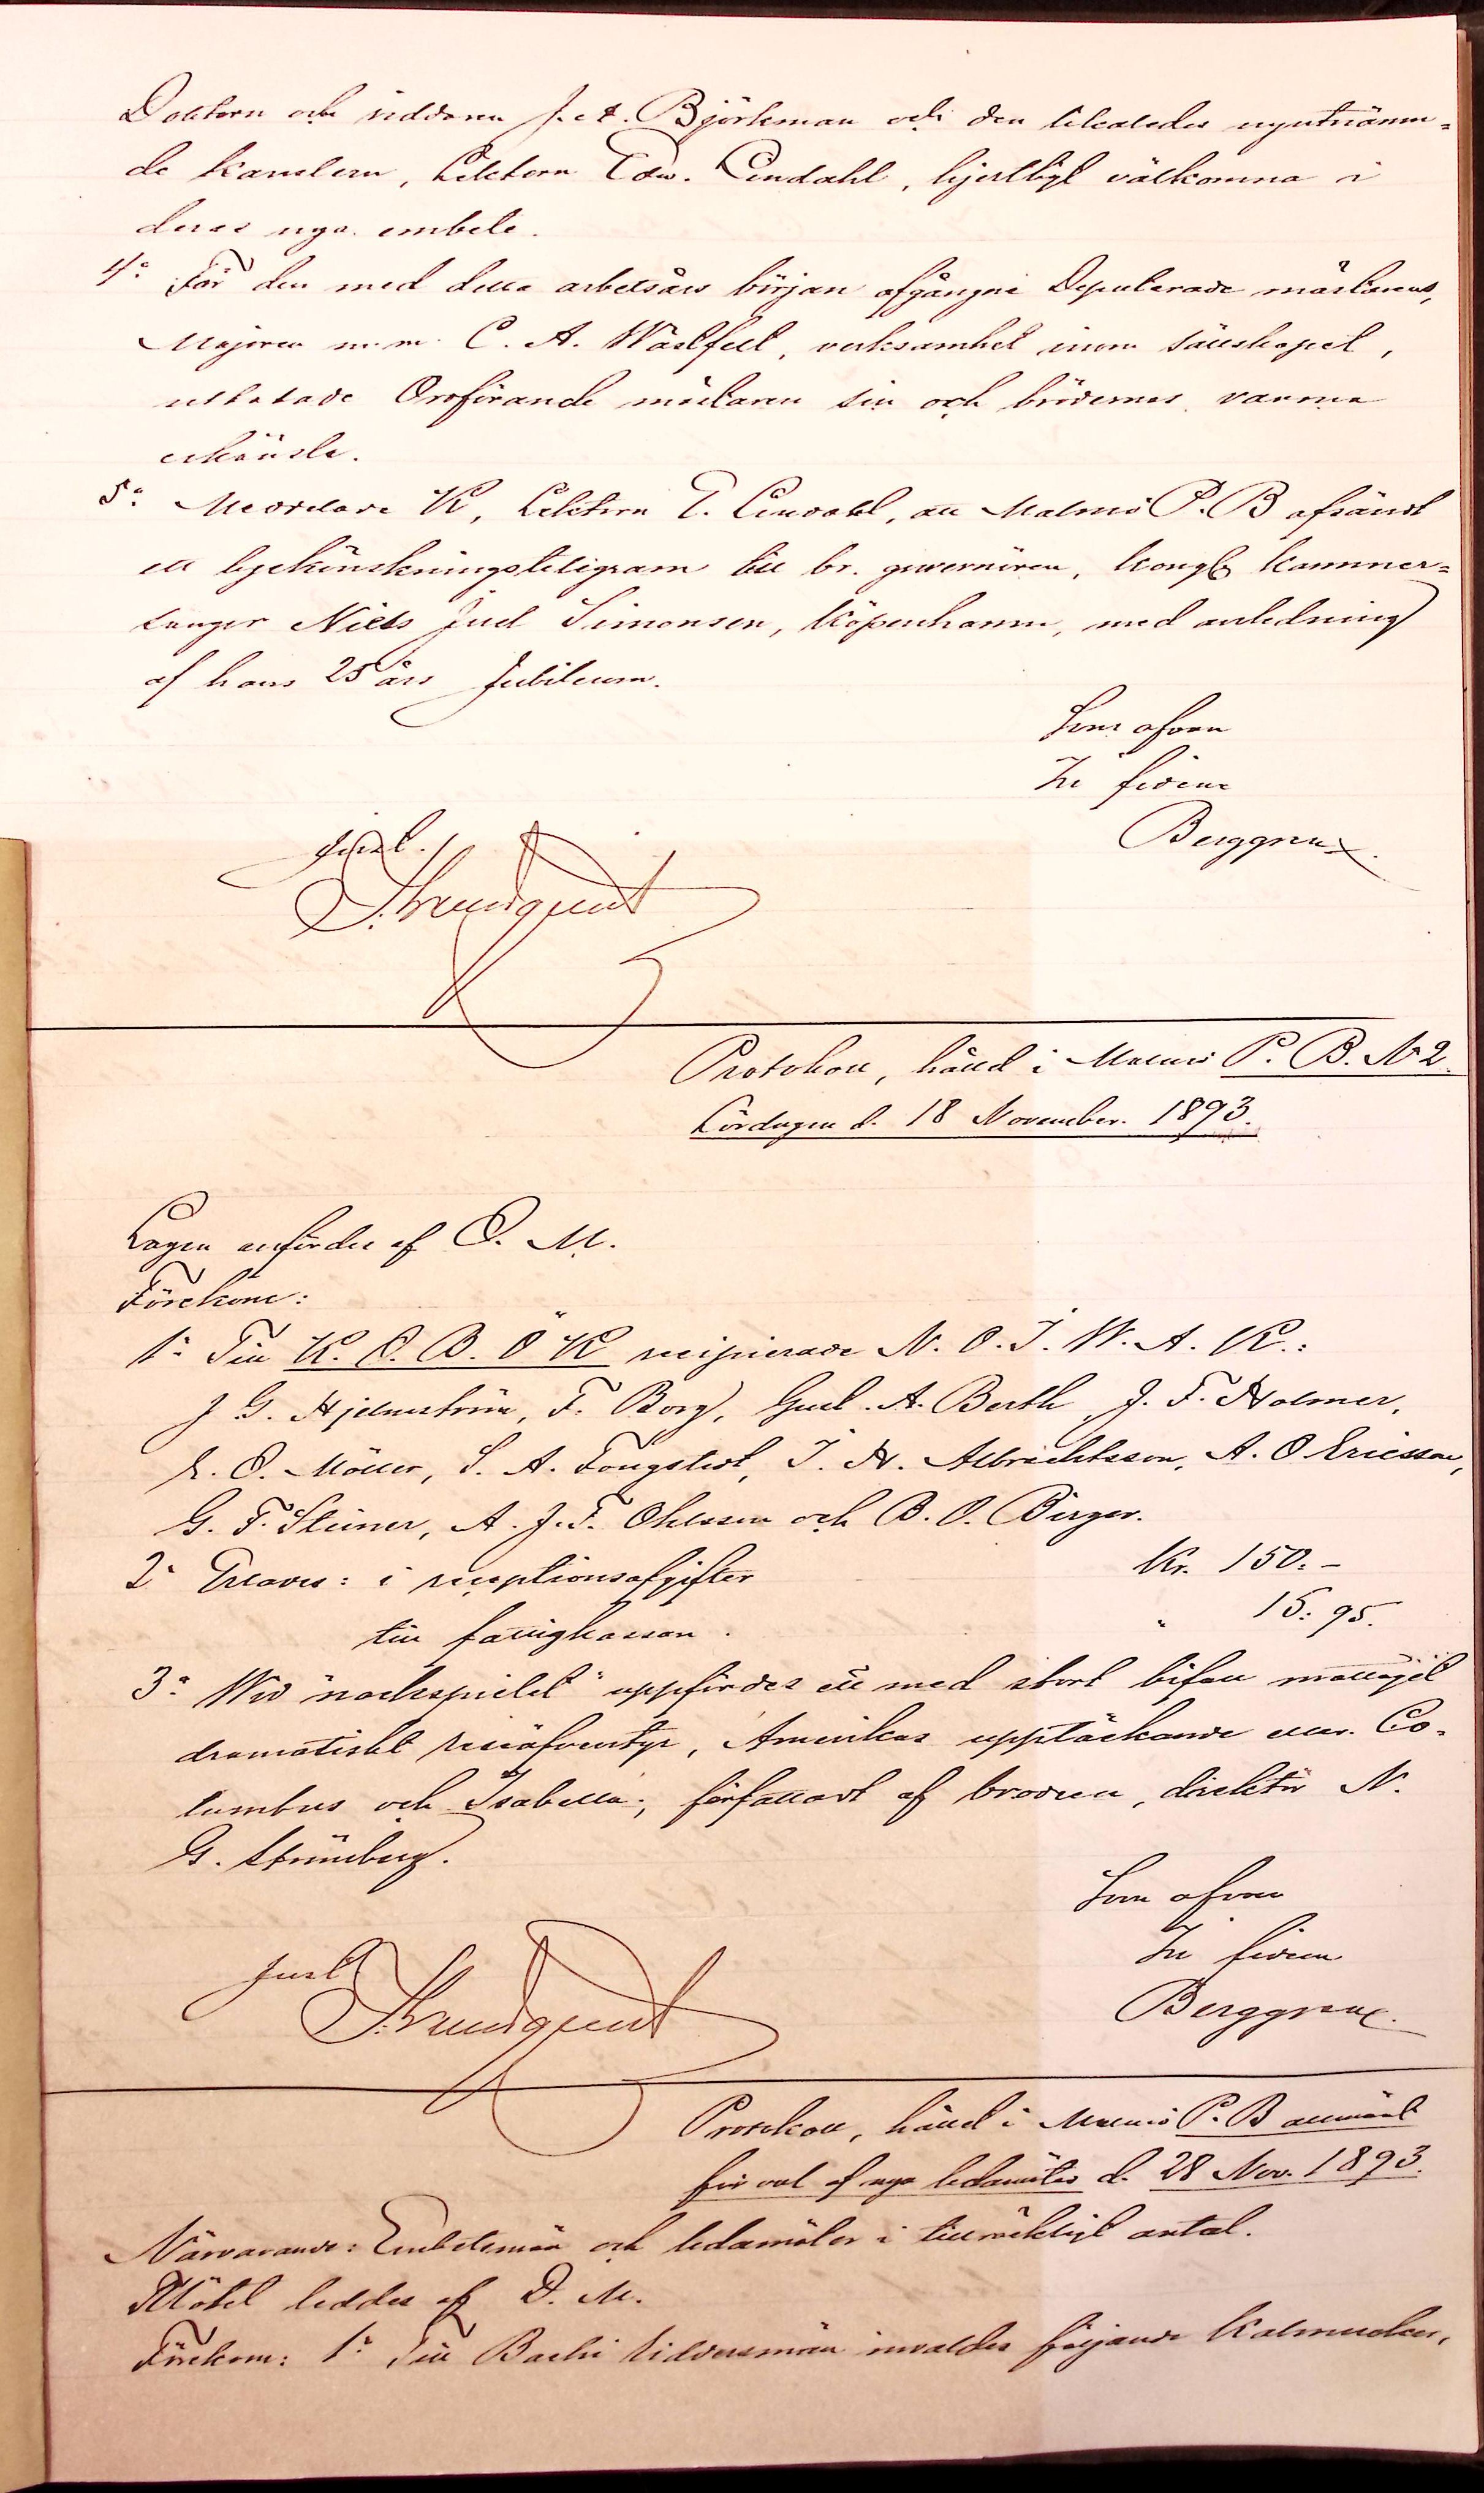 Doktorn och riddaren J. A. Björkman och den likaledes nyutnämn=
de kanslern, Lektorn Edw. Lindahl, hjertligt välkomna i
deras nya embete.
4º För den med detta arbetsårs början afgångne Deputerade mästarens,
Majoren m. m. C. A. Wästfelt, verksamhet inom sällskapet,
uttalade Ordförande mästaren sin och brödernas varma
erkänsla.
5º Meddelade K, Lektorn E. Lindahl, att Malmö P. B afsändt
ett lyckönskningstelegram till br. guvernören, kongl. kammer=
sanger Niels Juel Simonsen, Köpenhamn, med anledning
af hans 25 års Jubileum.
Som ofvan
In fidem
Berggren
Just.
Protokoll, hålld i Malmö P. B. Nº 2.
Lördagen d. 18 November. 1893.
Logen anfördes af O. M.
Förekom:
1º Till K. O. B. Ö K recipierade N. O. I. W. A. K.:
J G. Hjelmström, F. Borg, Gust. A. Berth, J. F. Holmer,
E. O. Möller, S. A. Tongstedt, I. H. Albrechtsson, A. O Ericsson,
G. F. Steiner, A. J. F. Ohlsson och B. O. Birger.
2º Erlades: i receptionsafgifter Kr. 150: -
till fattigkassan. " 15: 95.
3º Wid "nachspielet" uppfördes ett med stort bifall mottaget
dramatiskt reseäfventyr, Amerikas upptäckande eller Co-
lumbus och Isabella; författadt af brodern, direktör N.
G. Strömberg.
Som ofvan
In fidem
Berggren
Just.
Protokoll, hålld i Malmö P. B allmänt
för val af nya ledamöter d. 28 Nov. 1893.
Närvarande: Embetsmän och ledamöter i tillräckligt antal.
Mötet leddes af D. M.
Förekom: 1º Till Bachi tidversmän invaldes följande Kalmucker,